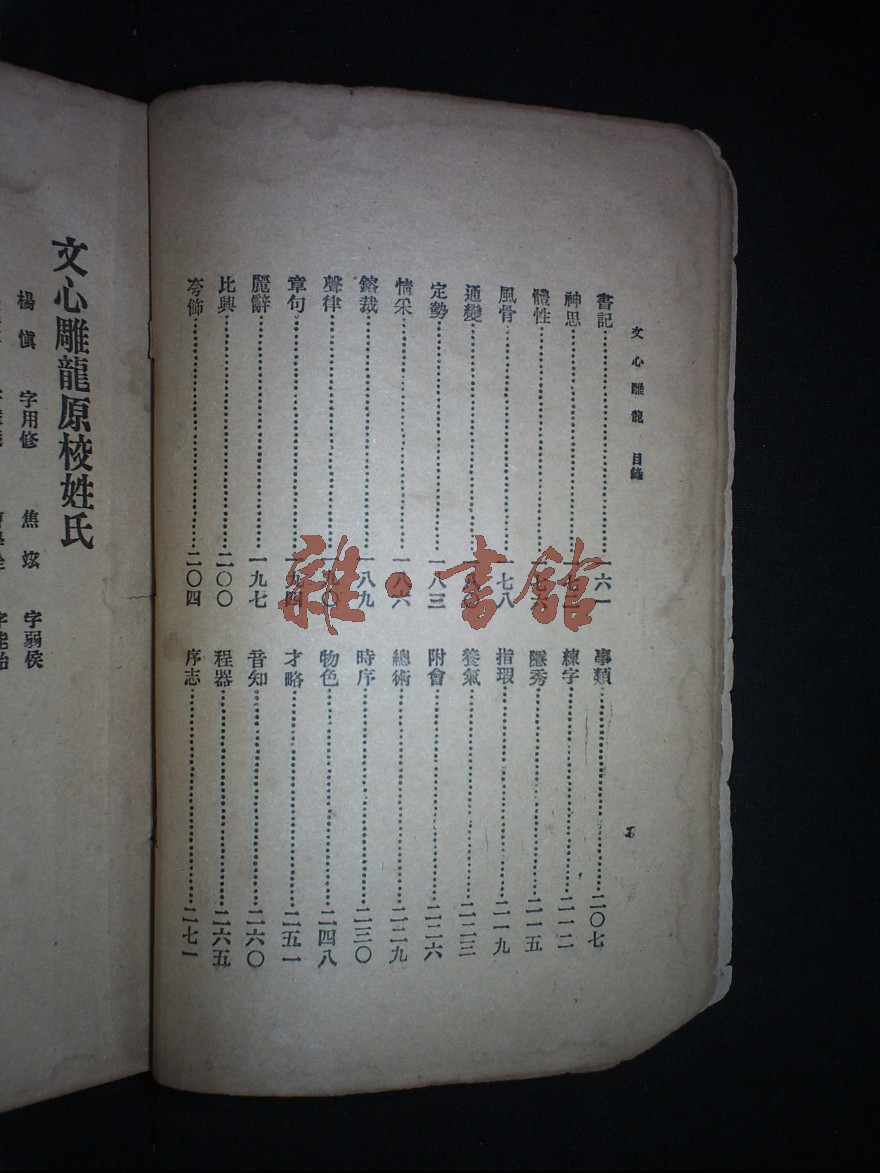 文心雕龍 目錄
書記……………一六一
神思……………一七二
體性……………一七六
風骨……………一七八
通變……………一八〇
定勢……………一八三
情采……………一八六
鎔裁……………一八九
聲律……………一九〇
章句……………一九四
麗辭……………一九七
比興……………二〇〇
夸飾……………二〇四
事類……………二〇七
練字……………二一二
隱秀……………二一五
指瑕……………二一九
養氣……………二二三
附會……………二二六
總術……………二二九
時序……………二三〇
物色……………二四八
才略……………二五一
音知……………二六〇
程器……………二六五
序志……………二七一
雜·書館
文心雕龍原校姓氏
楊慎 字用修 焦竑 字弱侯